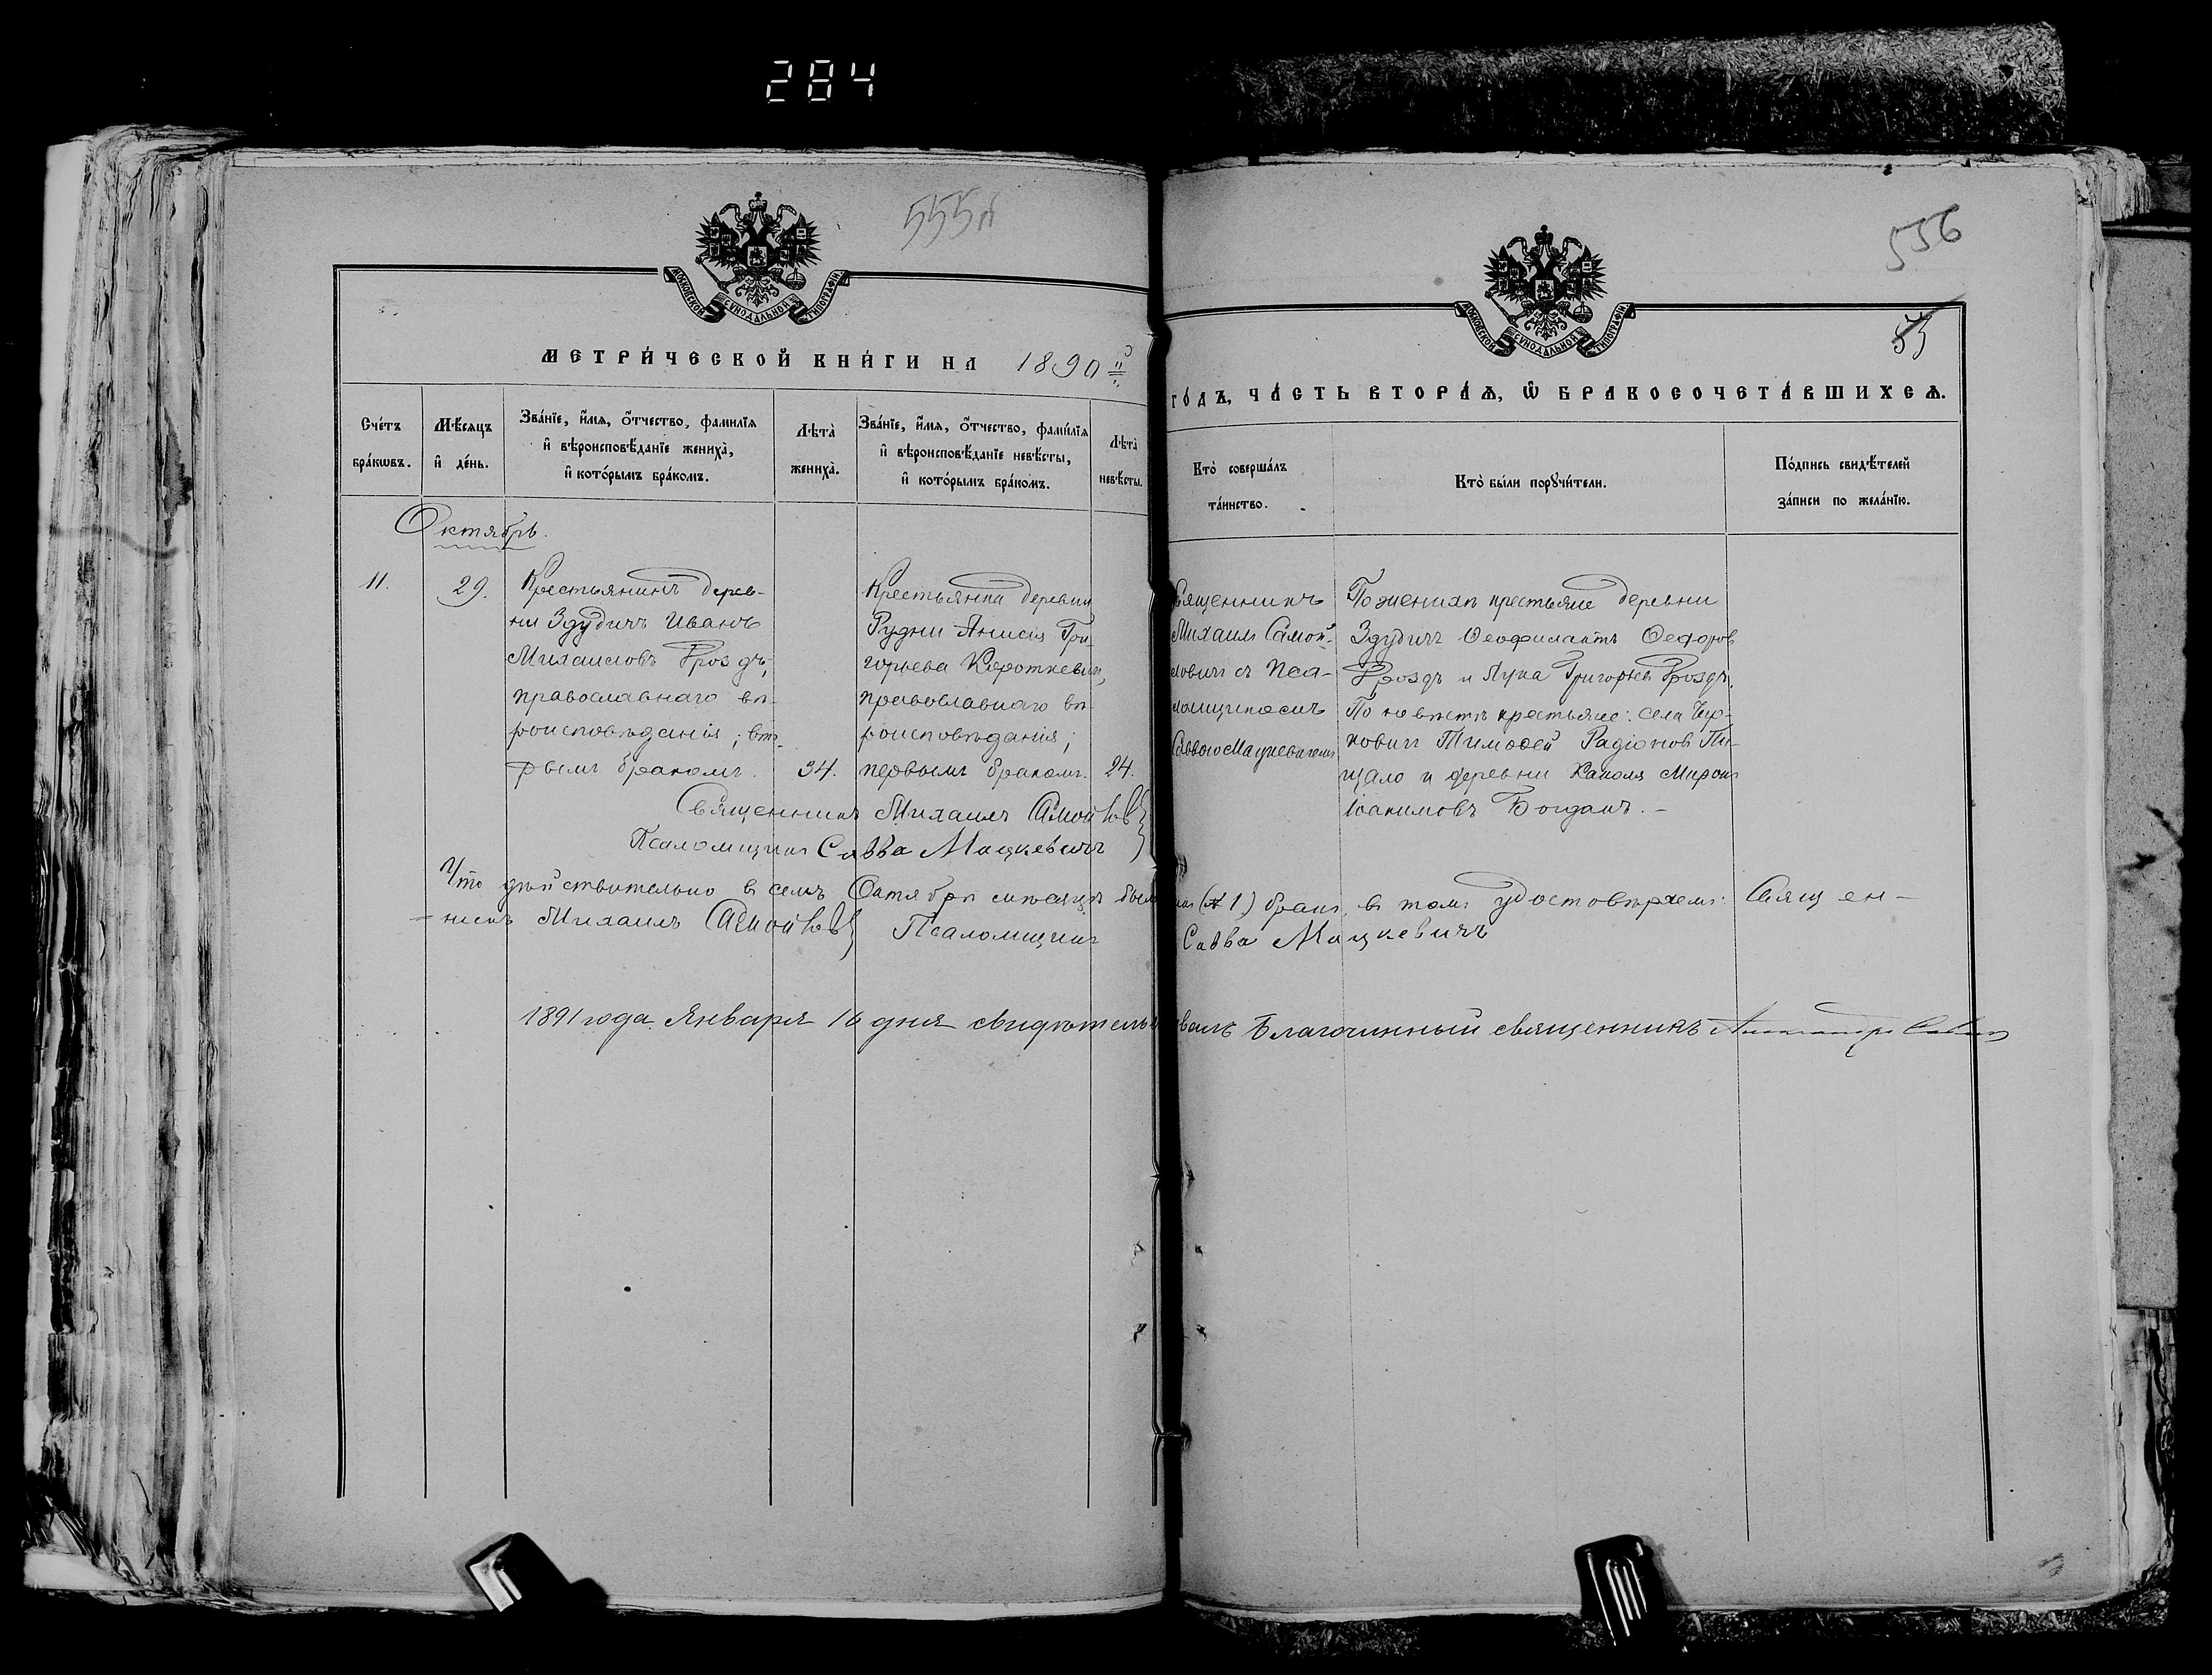 284
555
556
МОСКОВСКОЙ СУНОДАЛЬНОЙ ТИПОГРАФІИ
МОСКОВСКОЙ СУНОДАЛЬНОЙ ТИПОГРАФІИ
МЕТРИ́ЧЕСКОЙ КНИ́ГИ НА 1890й
ГО́ДЪ, ЧА́СТЬ ВТОРА́Ѧ, Ѽ БРАКОСОЧЕТА́ВШИХСѦ.
Сче́тъ
бра́кѡвъ.
Мѣ́сяцъ
и҆ де́нь.
Зва́нїе, и҆́мѧ, ѻ҆́тчество, фами́лїѧ
и҆ вѣроисповѣ́данїе жениха̀,
и҆ кото́рымъ бра́комъ.
Лѣта̀
жениха̀.
Зва́нїе, и҆́мѧ, ѻ҆́тчество, фами́лїѧ
и҆ вѣроисповѣ́данїе невѣ́сты,
и҆ кото́рымъ бра́комъ.
Лѣта̀
невѣ́сты.
Кто̀ соверша́лъ
та́инство.
Кто̀ бы́ли порꙋчи́тели.
По́дпись свидѣ́телей
за́писи по жела́нїю.
Октябрь.
11.
29.
Крестьянинъ дерев-
ни Здудичъ Иванъ
Михаиловъ Дроздъ,
православнаго вѣ-
роисповѣданія; вто-
рымъ бракомъ.
34.
Крестьянка деревни
Рудни Анисія Гри-
горьева Короткевичъ,
православнаго вѣ-
роисповѣданія;
первымъ бракомъ.
24.
Священникъ
Михаилъ Самой-
ловичъ съ Пса-
ломщикомъ
Саввою Мацкевичемъ
По женихѣ крестьяне деревни
Здудичъ Ѳеофилактъ Ѳедоровъ
Дроздъ и Лука Григорьевъ Дроздъ.
По невѣстѣ крестьяне: села
Тимоѳей Радіоновъ Пи-
щало и деревни Миронъ
Іоакимовъ Богданъ.
Священникъ Михаилъ
Псаломщикъ Савва Мацкевичъ
Что дѣйствительно в семъ Октябрѣ мѣсяцѣ былъ (№ 1) бракъ, въ томъ удостовѣряемъ: Священ-
никъ Михаилъ Псаломщикъ Савва Мацкевичъ
1891 года Января 16 дня свидѣтельствовалъ Благочинный священникъ Александръ